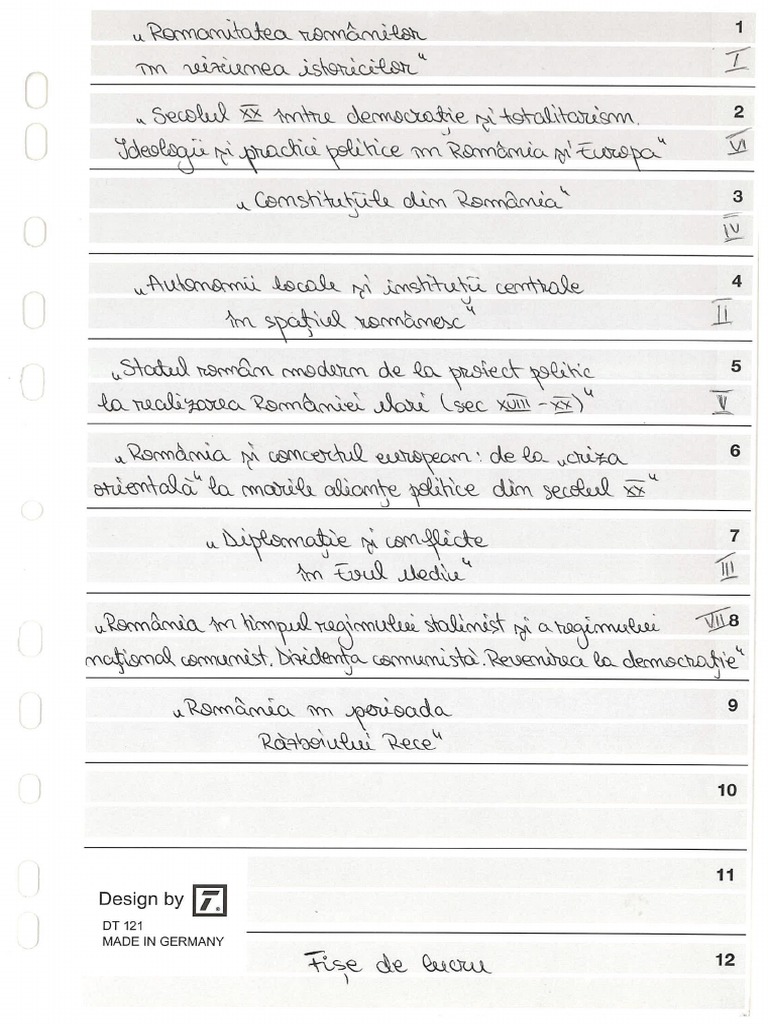 „Romanitatea românilor 1
în viziunea istoricilor" I
„Secolul XX între democrație și totalitarism. 2
Ideologii și practici politice în România și Europa" VI
„Constituțiile din România" 3
IV
„Autonomii locale și instituții centrale 4
în spațiul românesc" II
„Statul român modern de la proiect politic 5
la realizarea României Mari (sec XVIII - XX)" V
„România și concertul european: de la „criza 6
orientală" la marile alianțe politice din secolul XX"
„Diplomație și conflicte 7
în Evul Mediu" III
„România în timpul regimului stalinist și a regimului VII 8
național comunist. Dizidența comunistă. Revenirea la democrație"
„România în perioada 9
Războiului Rece"
10
11
Design by T.
DT 121
MADE IN GERMANY
Fișe de lucru 12